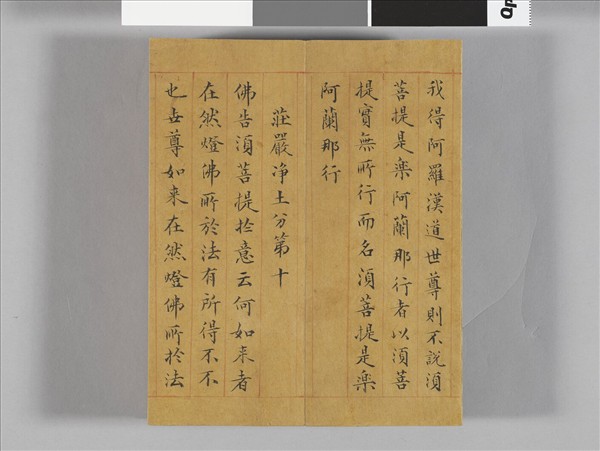 我得阿羅漢道世尊則不説湏
菩提是楽阿蘭那行者以湏菩
提實無所行而名湏菩提是楽
阿蘭那行
莊嚴净土分第十
佛告湏菩提扵意云何如来者
在然燈佛所於法有所得不不
也世尊如来在然燈佛所扵法